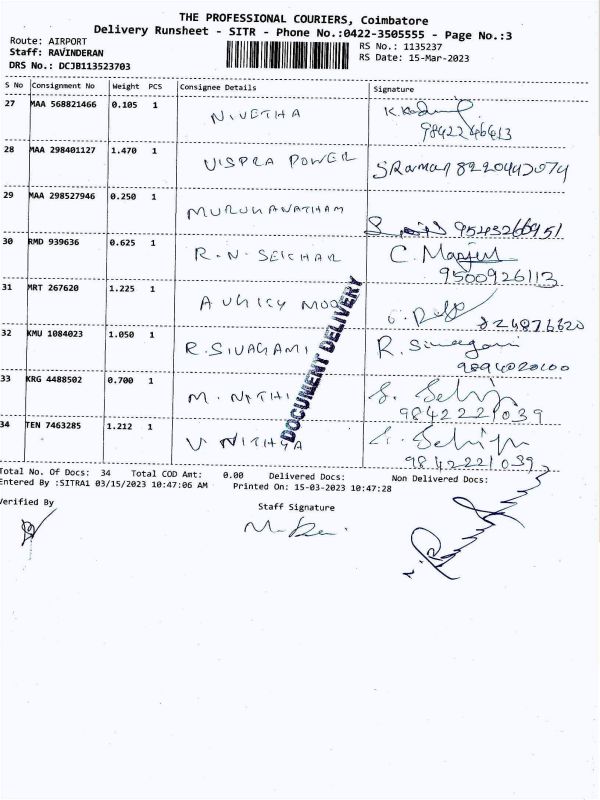 THE PROFESSIONAL COURIERS, Coimbatore
Delivery Runsheet - SITR - Phone No.:0422-3505555 - Page No.:3
Route: AIRPORT
Staff: RAVINDERAN
DRS No.: DCJB113523703
RS No.: 1135237
RS Date: 15-Mar-2023
S No Consignment No Weight PCS Consignee Details Signature
27 MAA 568821466 0.105 1 NIVETHA
9842246413
28 MAA 298401127 1.470 1 VISPRA POWER SRaman
29 MAA 298527946 0.250 1 MURUKANATHAM
9543266951
30 RMD 939636 0.625 1 R.N. SEICHAR C.
9500926113
31 MRT 267620 1.225 1
32 KMU 1084023 1.050 1 R. SIVAGAMI R. Sivagami
9894020100
33 KRG 4488502 0.700 1 M. NITHI
9842221039
34 TEN 7463285 1.212 1 V NITHYA
9842221039
DOCUMENT DELIVERY
Total No. Of Docs: 34 Total COD Amt: 0.00 Delivered Docs: Non Delivered Docs:
Entered By :SITRAL 03/15/2023 10:47:06 AM Printed On: 15-03-2023 10:47:28
Verified By
Staff Signature